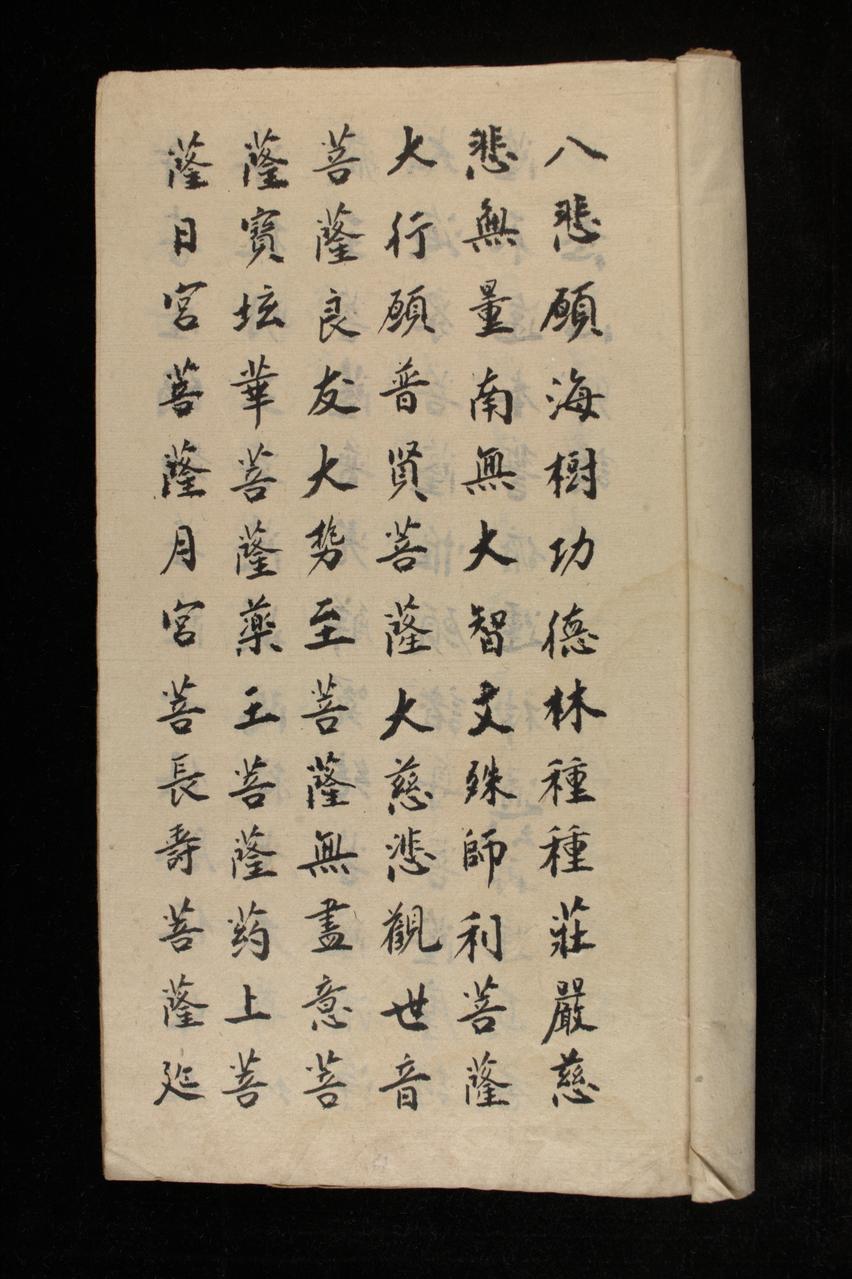 八悲願海樹功德林種種莊嚴慈
悲無量南無大智文殊師利菩薩
大行願普賢菩薩大慈悲觀世音
菩薩良友大势至菩薩無盡意菩
薩寳坛華菩薩藥王菩薩药上菩
薩日宮菩薩月宮菩長壽菩薩延